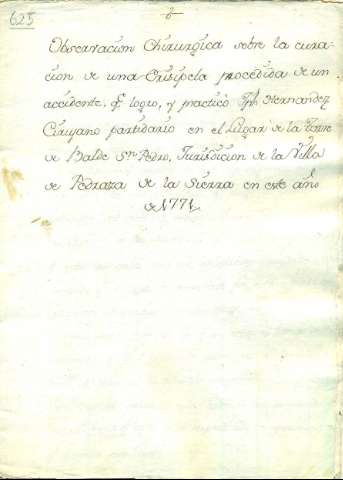 625
Observacion Chirurgica sobre la cura-
cion de una Erisipela procedida de un
accidente, q.e logro, y practicò Jph. Hernandez
Cirujano partidario en el Lugar de la Torre
de Balde Sn. Pedro, Jurisdicion de la Villa
de Pedraza de la Sierra en este año
de 1771